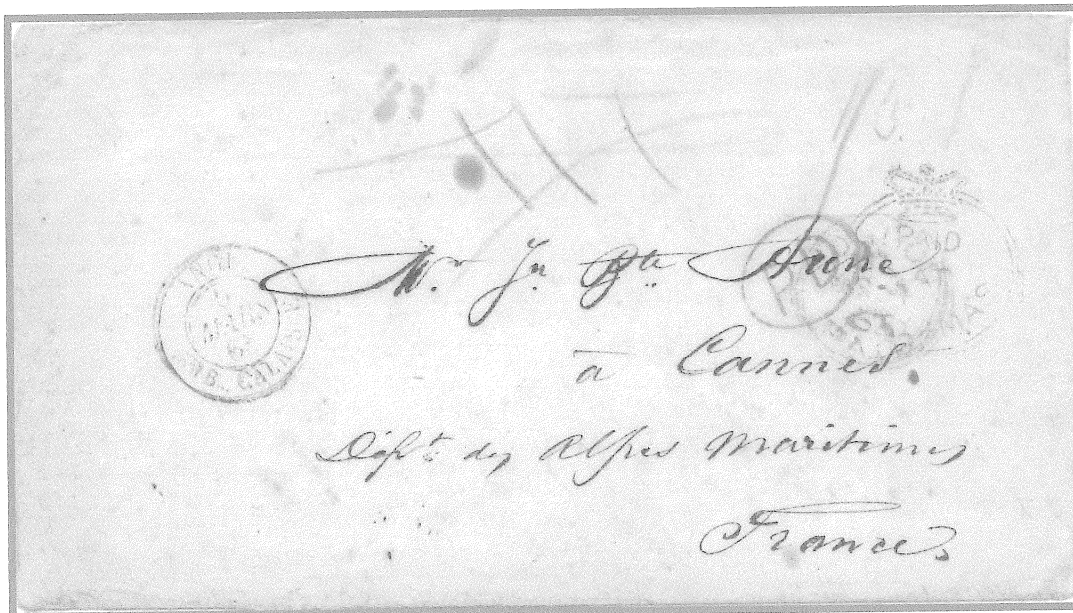 Mr. Jn. Bte. Aune
à Cannes.
Dépt. des Alpes Maritimes
France
MARS
AMB. CALAIS
PD
PAID